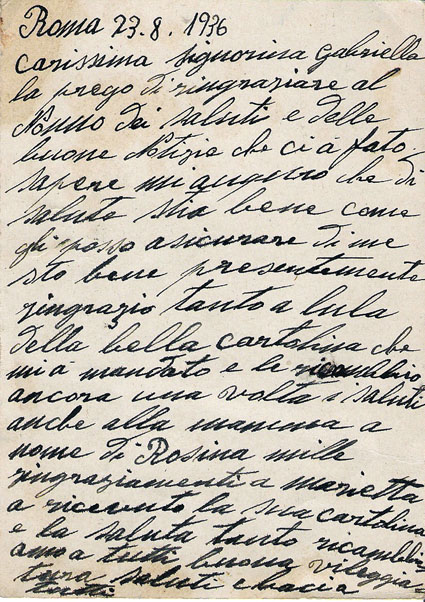 Roma 23.8.1936
Carissima Signorina Gabriella
la prego di ringraziare al
Nonno dei saluti e delle
buone Notizie che ci a fato
sapere mi auguro che di
salute stia bene come
gli posso asicurare di me
sto bene presentemente
ringrazio tanto a lula
della bella cartolina che
mi a mandato e le ricambio
ancora una volta i saluti
anche alla mamma a
nome di Rosina mille
ringraziamenti a marietta
a ricevuto la sua cartolina
e la saluta tanto ricambi
amo a tutti buona villeggia
tura saluti e bacia
tutti